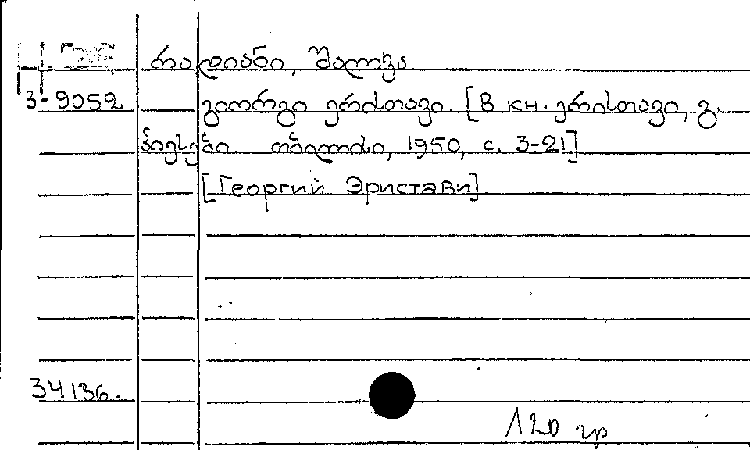 რადიანი, შალვა
3-9052 გიორგი ერისთავი. [В кн. ერისთავი, გ.
პიესები. თბილისი, 1950, с. 3-21]
[Георгий Эристави]
34136.
120 гр